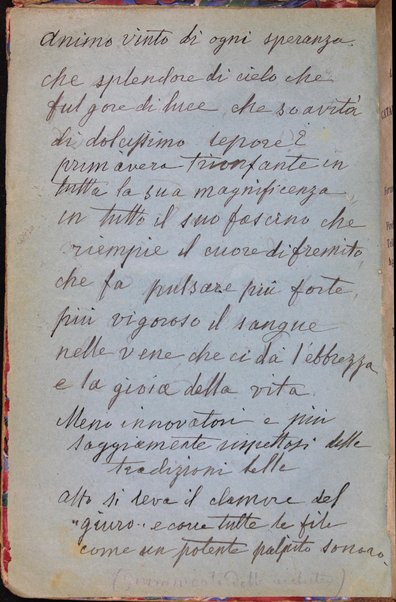 animo vinto di ogni speranza.
che splendore di cielo che
fulgore di luce che soavità
di dolcissimo tepore?
primavera trionfante in
tutta la sua magnificenza
in tutto il suo fascino che
riempie il cuore di fremito,
che fa pulsare più forte,
più vigoroso il sangue
nelle vene che ci dà l'ebbrezza
e la gioia della vita.
Meno innovatori e più
saggiamente rispettosi delle
tradizioni belle
alto si leva il clamore del
"giuro" e corre tutte le file
come un potente palpito sonoro.